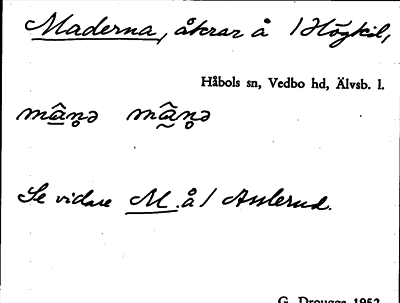 Maderna, åkrar å 1 Högkil,
Håbols sn, Vedbo hd, Älvsb. l.
mâ̱n̥ə mã̂n̥ə
Se vidare M. å 1 Asslerud.
G. Drougge 1952